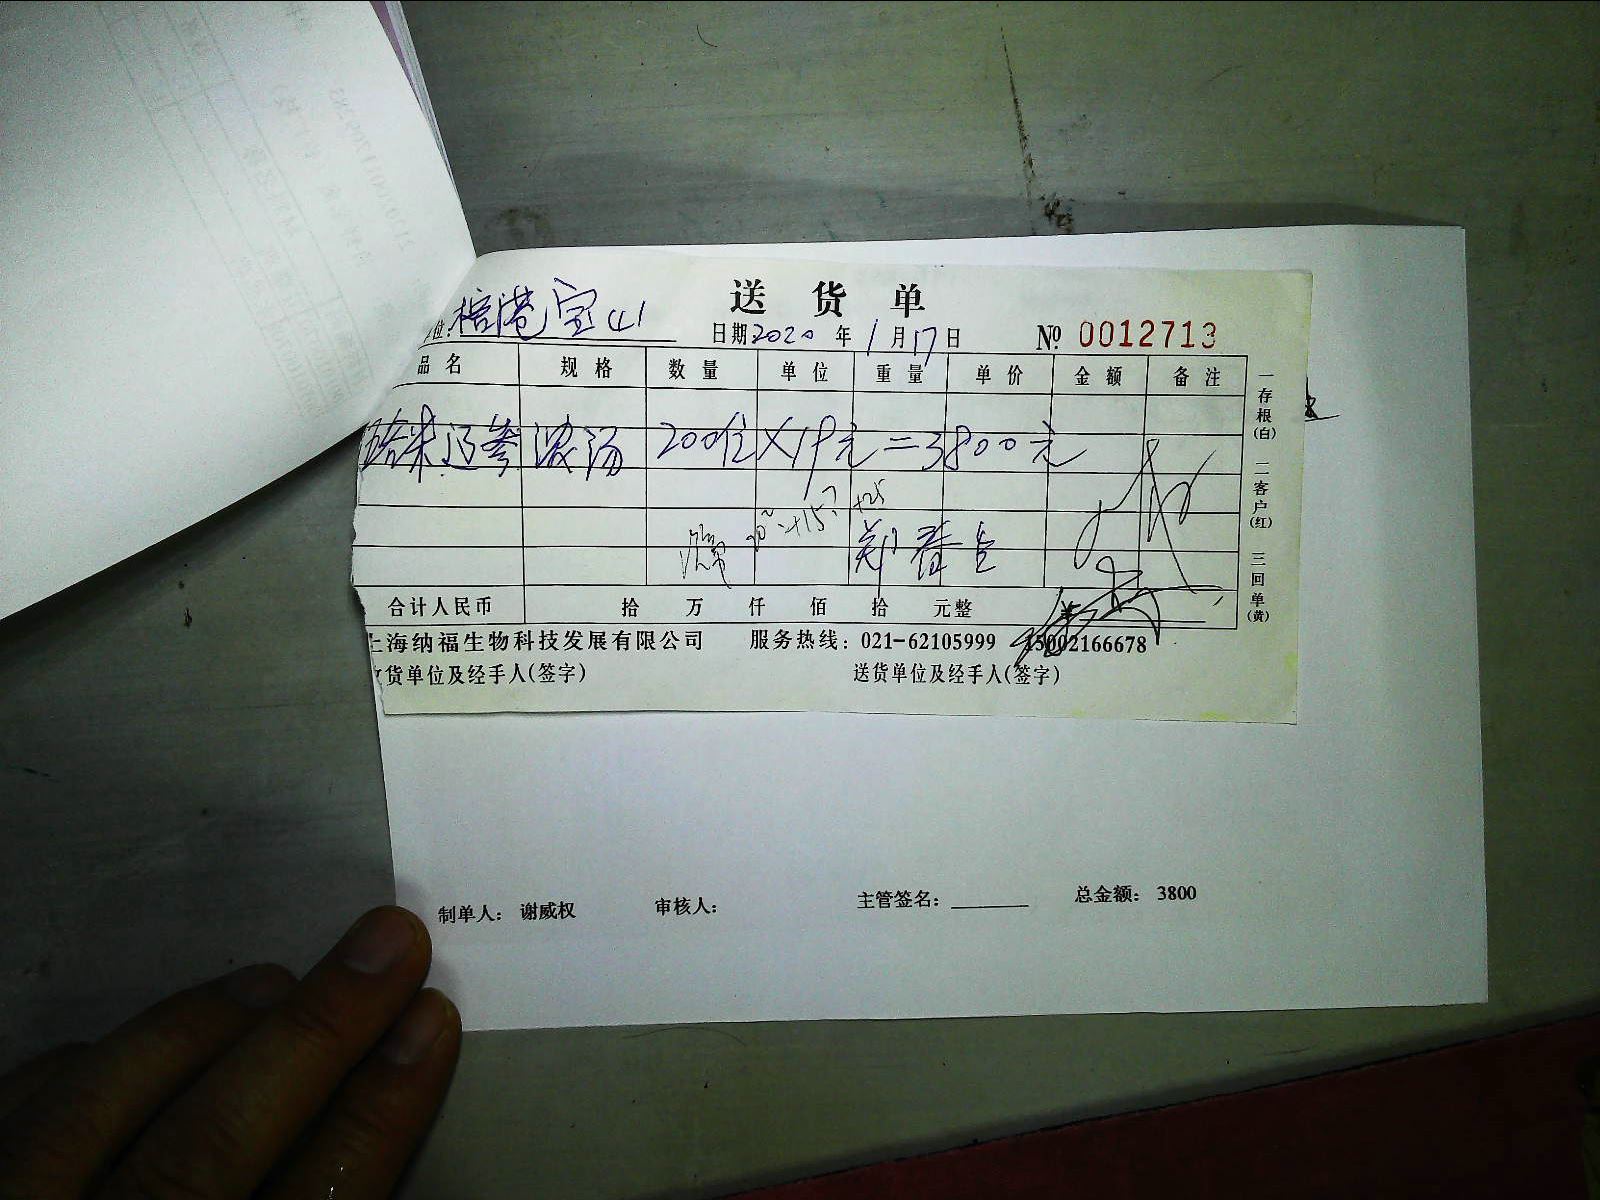 送货单
位：榕港宝山 日期2020年1月17日 № 0012713
品名 规格 数量 单位 重量 单价 金额 备注
浓汤 200位×19元=3800元
郑春生
合计人民币 拾 万 仟 佰 拾 元整
上海纳福生物科技发展有限公司 服务热线：021-62105999 15002166678
货单位及经手人(签字) 送货单位及经手人(签字)
一存根(白) 二客户(红) 三回单(黄)
制单人： 谢威权 审核人： 主管签名： 总金额： 3800